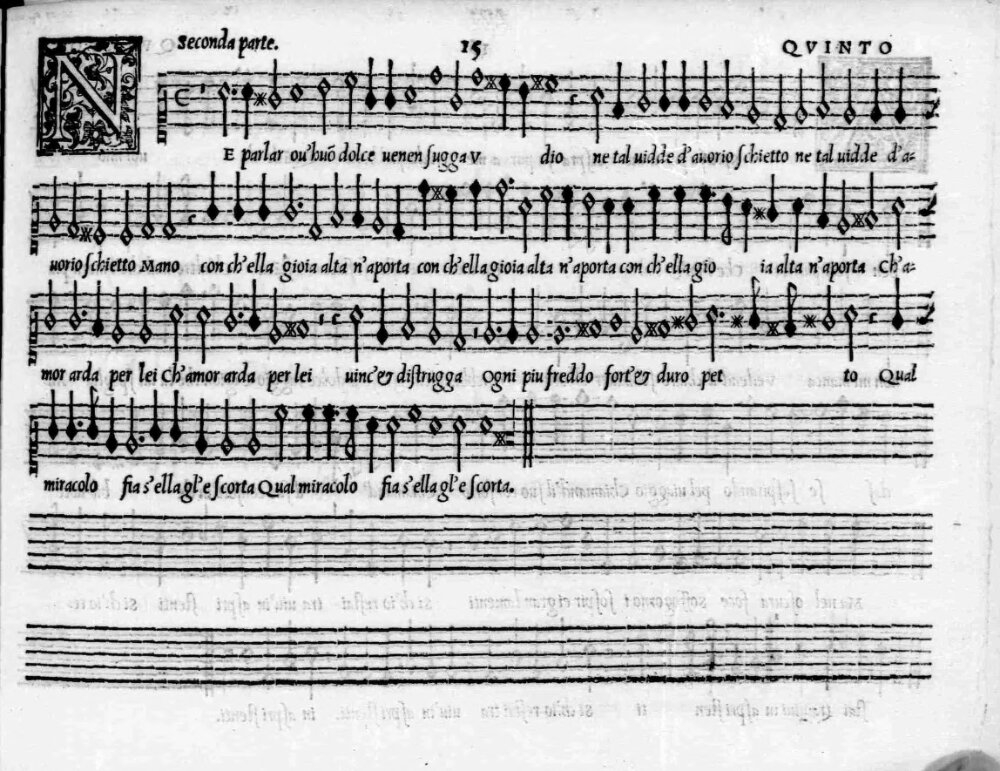 Seconda parte. 15 QVINTO
NE parlar ou'huõ dolce uenen sugga V dio ne tal uidde d'auorio schietto ne tal uidde d'a-
uorio schietto Mano con ch'ella gioia alta n'aporta con ch'ella gioia alta n'aporta con ch'ella gio ia alta n'aporta Ch'a-
mor arda per lei Ch'amor arda per lei uinc'e& distrugga Ogni piu freddo fort'e& duro pet to Qual
miracolo fia s'ella gl'e scorta Qual miracolo fia s'ella gl'e scorta.